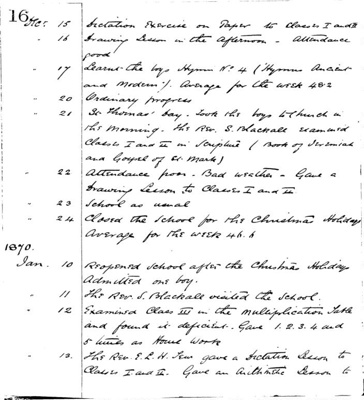 16
Dec. 15 Dictation Exercise on Paper to Classes I and II
" 16 Drawing Lesson in the Afternoon - Attendance
good
" 17 Learnt the boys Hymn No 4 (Hymns Ancient
and Modern). Average for the week 48.2
" 20 Ordinary progress
" 21 St Thomas' Day. Took the boys to Church in
the Morning. The Rev. S. Blackall examined
Classes I and II in Scripture (Book of Jeremiah
and Gospel of St Mark)
" 22 Attendance poor - Bad weather - Gave a
Drawing Lesson to Classes I and II
" 23 School as usual
" 24 Closed the School for the Christmas Holidays
Average for the week 46.6
1870.
Jan. 10 Reopened School after the Christmas Holidays
Admitted one boy.
" 11 The Rev. S. Blackall visited the School.
" 12 Examined Class III in the Multiplication Table
and found it deficient. Gave 1. 2. 3. 4 and
5 times as Home Work
" 13. The Rev. E. L. H. Tew gave a Dictation Lesson to
Classes I and II. Gave an Arithmetic Lesson to